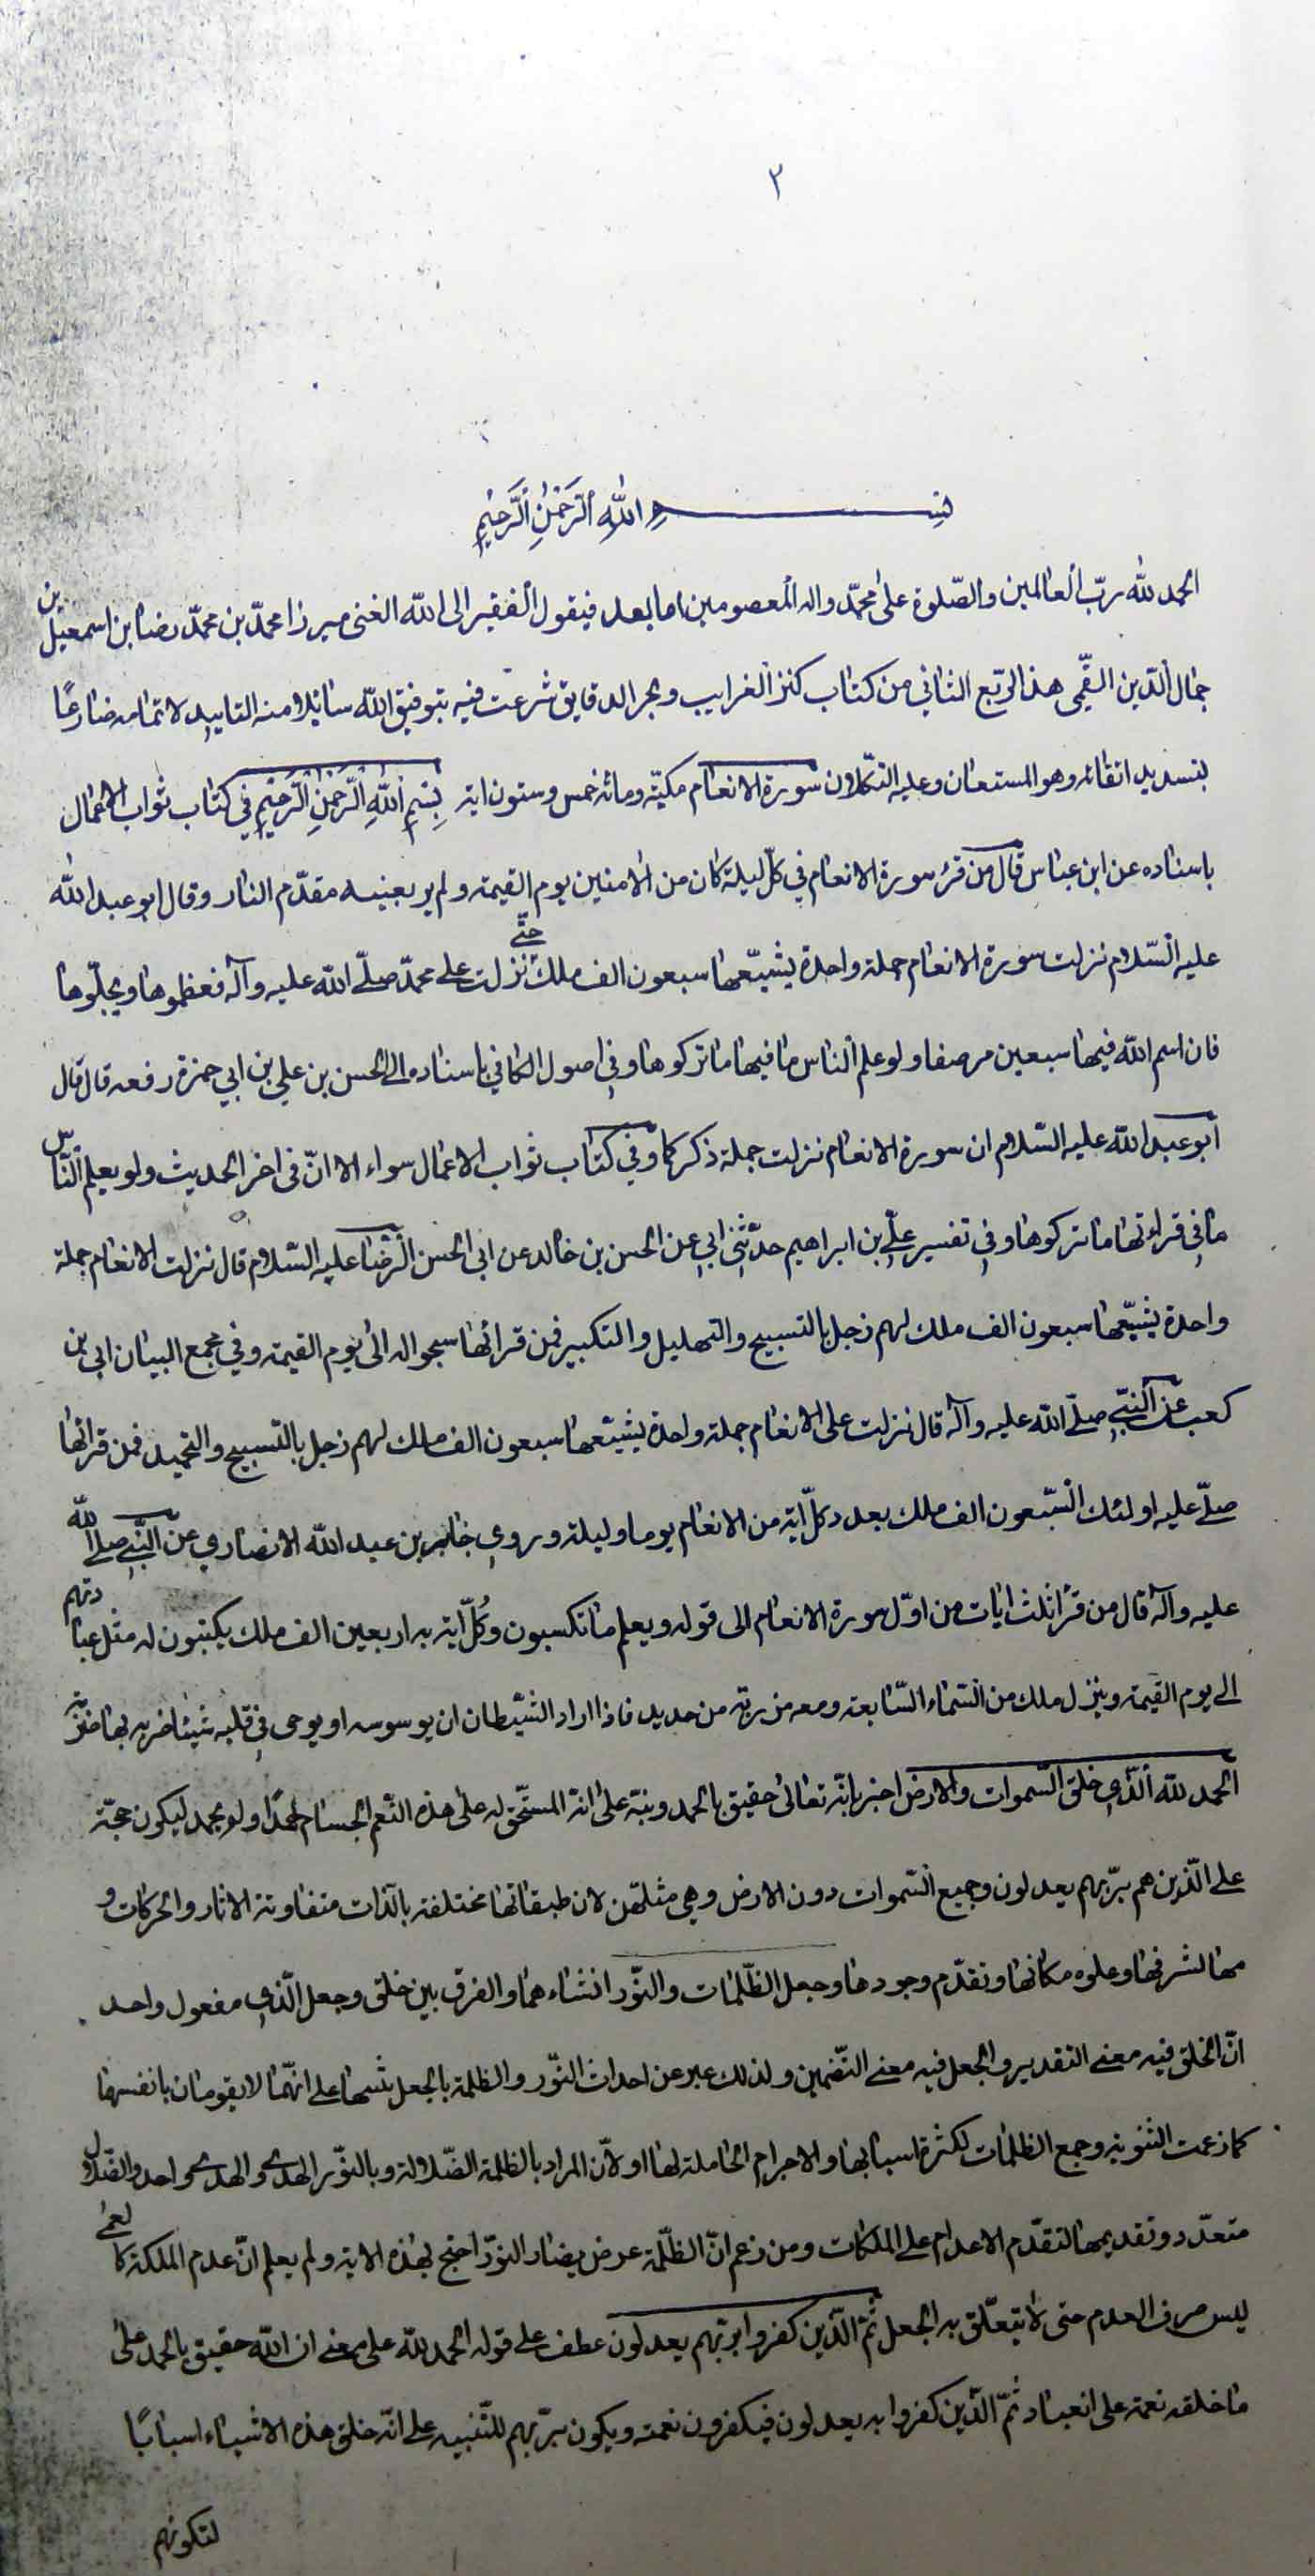 ٢
بسم الله الرحمن الرحيم
الحمد لله ربّ العالمين والصّلوة على محمّد واله المعصومين اما بعد فيقول الفقير الى الله الغنى ميرزا محمّد بن محمّد رضا بن اسمعيل بن
جمال الدّين القمّى هذا الرّبع الثانى من كتاب كنز الغرايب وبحر الدقايق شرعت فيه بتوفيق الله سائلا منه التاييد لاتمامه ضارعًا
بتسديد اتقانه وهو المستعان وعليه التكلان سورة الانعام مكيّة ومائه خمس وستون اية بِسْمِ اللهِ الرَّحْمٰنِ الرَّحِيمِ في كتاب ثواب الاعمال
باسناده عن ابن عباس قال من قرء سورة الانعام في كلّ ليلة كان من الامنين يوم القيمة ولم ير بعينه مقدّم النار وقال ابو عبد الله
عليه السّلام نزلت سورة الانعام جملة واحدة يشيّعها سبعون الف ملك حتّى نزلت على محمد صلّى الله عليه وآله فعظموها وبجلّوها
فان اسم الله فيها سبعين مرضعا ولو علم الناس ما فيها ما تركوها وفي اصول الكافي باسناده الى الحسن بن علي بن ابي حمزة رفعه قال قال
ابو عبد الله عليه السّلام ان سورة الانعام نزلت جملة ذكر كما وفي كتاب ثواب الاعمال سواء الا انّ فى اخر الحديث ولو يعلم النّاس
ما في قراءتها ما تركوها وفي تفسير علّي بن ابراهيم حدّثني ابي عن الحسن بن خالد عن ابى الحسن الرّضا عليه السّلام قال نزلت الانعام جملة
واحدة يشيّعها سبعون الف ملك لهم زجل بالتسبيح والتهليل والتكبير فمن قرائها سبحوا له الى يوم القيمة وفي مجمع البيان ابي بن
كعب عن النبيّ صلّى الله عليه وآله قال نزلت على الانعام جملة واحدة يشيّعها سبعون الف ملك لهم زجل بالتسبيح والتحميد فمن قرائها
صلّى عليه اولئك السّبعون الف ملك بعدد كلّ اية من الانعام يوما وليلة وروي جابر بن عبد الله الانصاري عن النّبي صلى الله
عليه وآله قال من قرا ثلث ايات من اوّل سورة الانعام الى قوله ويعلم ما تكسبون وكُلّ اية به اربعين الف ملك يكتبون له مثل عبادتهم
الى يوم القيمة وينزل ملك من السّماء السّابعة ومعه مرزبة من حديد فاذا اراد الشّيطان ان يوسوسه او يوحى في قلبه شيئا ضربه بها ضربة
الحمد لله الّذي خلق السّموات والارض اخبر بانّه تعالى حقيق بالحمد ونبّه على انّه المستحّق له على هذه النّعم الجسام حمدًا ولو يحمد ليكون حجّة
على الّذين هم بربّهم يعدلون وجميع السّموات دون الارض وهي مثلهّن لان طبقاتها مختلفة بالذّات متفاوتة الاثار والحركات و
مها لشرفها وعلوه مكانها وتقدّم وجودها وجعل الظّلمات والنّور انشاءهما والفرق بين خلق وجعل الّذي مفعول واحد
انّ الخلق فيه معنى التقدير والجعل فيه معنى التّضمين ولذلك عبر عن احداث النّور والظلمة بالجعل تنبيها على انّهما لا يقومان بانفسها
كما زعمت الثنوية وجمع الظلمات لكثرة اسبابها والاجرام الحاملة لها او لانّ المراد بالظلمة الضّلالة وبالنوّر الهدى والهدى واحد والضّلال
متعدّد وتقديمها لتقدّم الاعدام على الملكات ومن زعم انّ الظلّمة عرض يضاد النوّر احتج بهذه الاية ولم يعلم انّ عدم الملكة كالعمى
ليس صرف العدم حتى لا يتعلّق به الجعل ثمّ الّذين كفروا بربّهم يعدلون عطف على قوله الحمد للّه على معنى ان اللّه حقيق بالحمد على
ما خلقه نعمة على العباد ثمّ الّذين كفروا به يعدلون فيكفرون نعمته ويكون بربّهم للتّنبيه على انّه خلق هذه الاشياء اسبابًا
لتكونهم